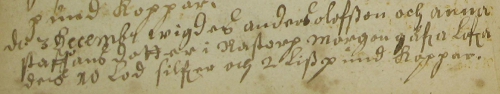 p und Koppar:
de 3 decembr wigdes anders olofsson och anna
staffans dotter i Nastorp morgon gåfva
dess 10 Lod silfver och 2 Lisp und Koppar.